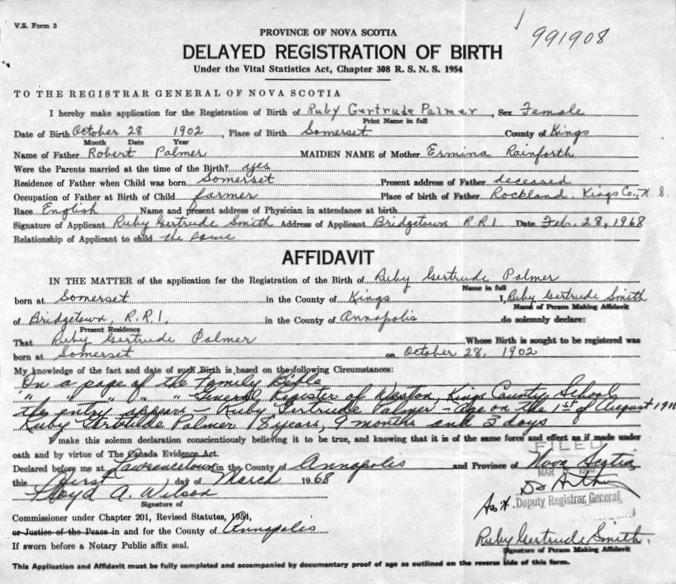 V.S. Form 3
991908
PROVINCE OF NOVA SCOTIA
DELAYED REGISTRATION OF BIRTH
Under the Vital Statistics Act, Chapter 308 R. S. N. S. 1954
TO THE REGISTRAR GENERAL OF NOVA SCOTIA
I hereby make application for the Registration of Birth of Ruby Gertrude Palmer, Sex Female
Print Name in full
Date of Birth October 28 1902, Place of Birth Somerset County of Kings
Month Date Year
Name of Father Robert Palmer MAIDEN NAME of Mother Ermina Rainforth
Were the Parents married at the time of the Birth? yes
Residence of Father when Child was born Somerset Present address of Father deceased
Occupation of Father at Birth of Child farmer Place of birth of Father Rockland, Kings Co., N.S.
Race English Name and present address of Physician in attendance at birth
Signature of Applicant Ruby Gertrude Smith Address of Applicant Bridgetown R.R.1. Date Feb. 28, 1968
Relationship of Applicant to child the same
AFFIDAVIT
IN THE MATTER of the application for the Registration of the Birth of Ruby Gertrude Palmer
Name in full
born at Somerset in the County of Kings I, Ruby Gertrude Smith
Name of Person Making Affidavit
of Bridgetown, R.R.1, in the County of Annapolis do solemnly declare:
Present Residence
That Ruby Gertrude Palmer Whose Birth is sought to be registered was
born at Somerset on October 28, 1902
My knowledge of the fact and date of such Birth is based on the following Circumstances:
On a page of the Family Bible
" " " " " General Register of Weston, Kings County School
the entry appears - Ruby Gertrude Palmer - age on the 1st of August
Ruby Gertrude Palmer 8 years, 9 months and 3 days
I make this solemn declaration conscientiously believing it to be true, and knowing that it is of the same force and effect as if made under
oath and by virtue of The Canada Evidence Act.
FILED
Declared before me at Lawrencetown in the County of Annapolis and Province of Nova Scotia
MAR
this first day of March 1968
Lloyd A. Wilson
Signature of
Ass't. Deputy Registrar General
Commissioner under Chapter 201, Revised Statutes, 1954,
or Justice of the Peace in and for the County of Annapolis
Ruby Gertrude Smith
If sworn before a Notary Public affix seal.
Signature of Person Making Affidavit
This Application and Affidavit must be fully completed and accompanied by documentary proof of age as outlined on the reverse side of this form.